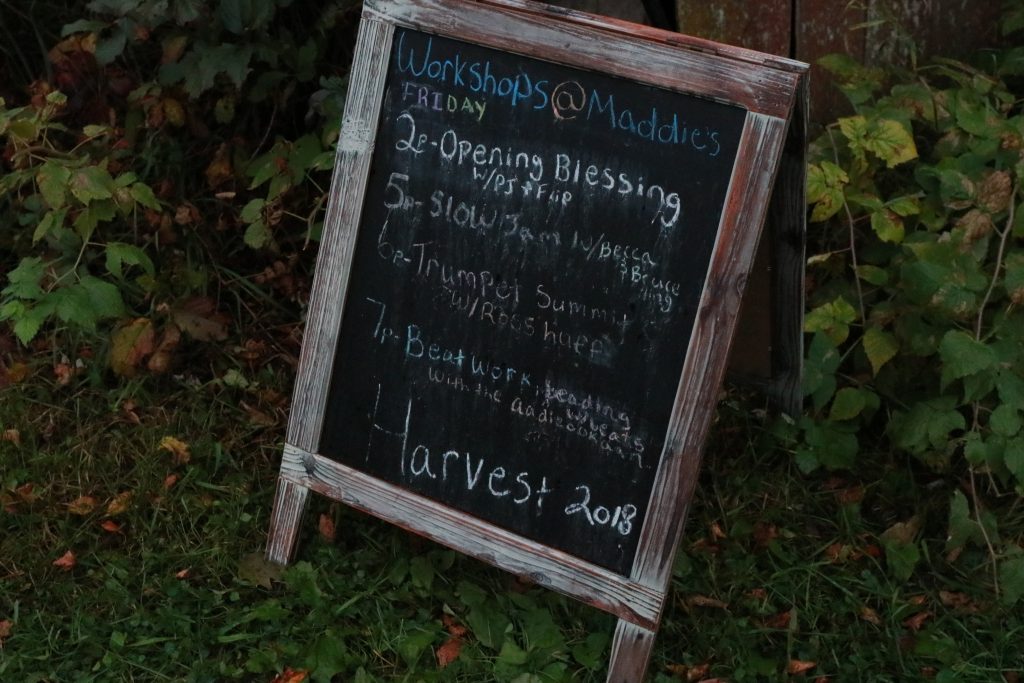 Workshops@Maddie's
FRIDAY
2p-Opening Blessing
w/PJ + Flip
5p-Slow Jam w/Becca
& Bruce
Ling
6p-Trumpet Summit
w/Ross huff
7p-Beatwork: beading
w/beats
with the
Harvest 2018